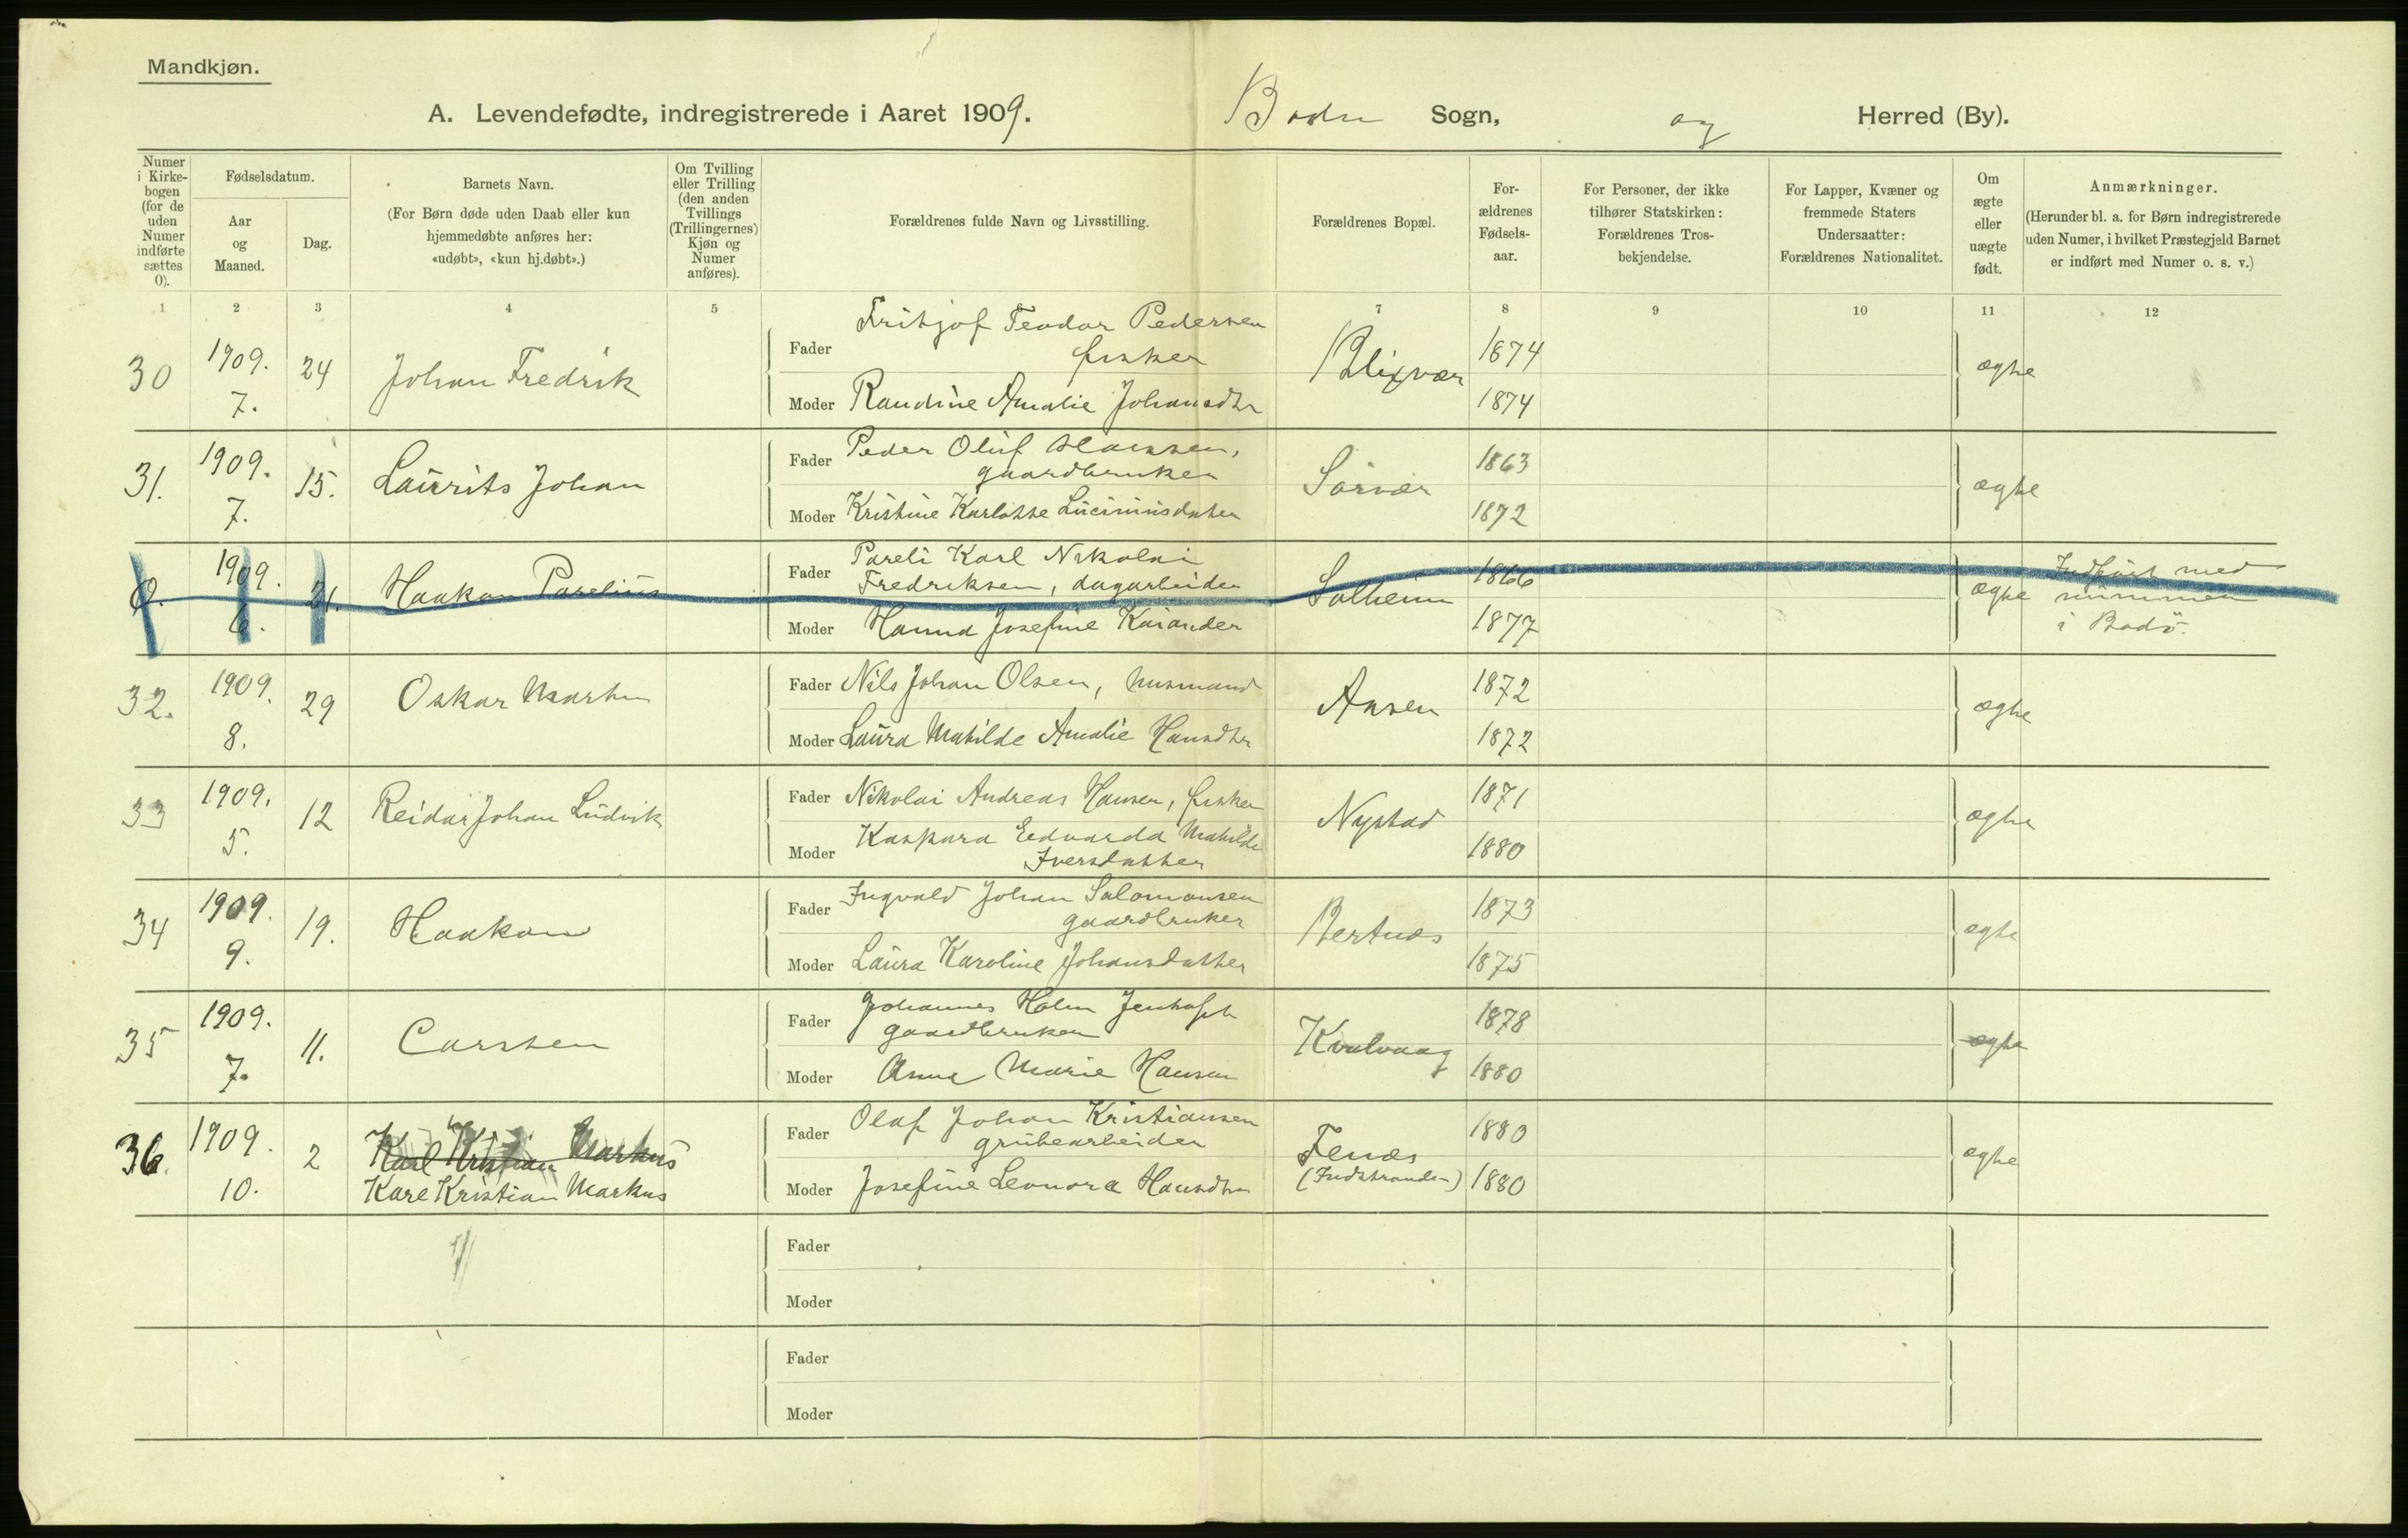 Mandkjøn.
A. Levendefødte, indregistrerede i Aaret 1909.
Bodin Sogn, og Herred (By).
Numer i Kirkebogen (for de uden Numer indførte sættes 0).
Fødselsdatum.
Aar og Maaned.
Dag.
Barnets Navn.
(For Børn døde uden Daab eller kun hjemmedøbte anføres her: «udøbt», «kun hj.døbt».)
Om Tvilling eller Trilling (den anden Tvillings (Trillingernes) Kjøn og Numer anføres).
Forældrenes fulde Navn og Livsstilling.
Forældrenes Bopæl.
Forældrenes Fødselsaar.
For Personer, der ikke tilhører Statskirken: Forældrenes Trosbekjendelse.
For Lapper, Kvæner og fremmede Staters Undersaatter: Forældrenes Nationalitet.
Om ægte eller uægte født.
Anmærkninger.
(Herunder bl. a. for Børn indregistrerede uden Numer, i hvilket Præstegjeld Barnet er indført med Numer o. s. v.)
1 2 3 4 5 7 8 9 10 11 12
30 1909. 7. 24 Johan Fredrik
Fader Fritjof Teodor Pedersen fisker
Moder Randine Amalie Johansdtr
Blixvær 1874 1874 ægte
31. 1909. 7. 15. Laurits Johan
Fader Peder Oluf Hanssen, gaardbruker
Moder Kristine Karlotte Luciniusdatter
Sørvær 1863 1872 ægte
0. 1909. 6. 21. Haakon Parelius
Fader Pareli Karl Nikolai Fredriksen, dagarbeider
Moder Hanna Josefine Kaiander
Solheim 1866 1877 ægte Indført med nummer i Bodø.
32. 1909. 8. 29 Oskar Martin
Fader Nils Johan Olsen, husmand
Moder Laura Matilde Amalie Hansdtr
Ausen 1872 1872 ægte
33 1909. 5. 12 Reidar Johan Ludvik
Fader Nikolai Andreas Hansen, fisker
Moder Kaspara Edvarda Matilde Iversdatter
Nystad 1871 1880 ægte
34 1909. 9. 19. Haakon
Fader Ingvald Johan Salomonsen gaardbruker
Moder Laura Karoline Johansdatter
Bertnes 1873 1875 ægte
35 1909. 7. 11. Carsten
Fader Johannes Holm Jentoft gaardbruker
Moder Anna Marie Hansen
Kvalvaag 1878 1880 ægte
36. 1909. 10. 2 Karl Kristian Markus
Kare Kristian Markus
Fader Olaf Johan Kristiansen grubearbeider
Moder Josefine Leonora Hansdtr
Fenes (Indstranden) 1880 1880 ægte
Fader
Moder
Fader
Moder